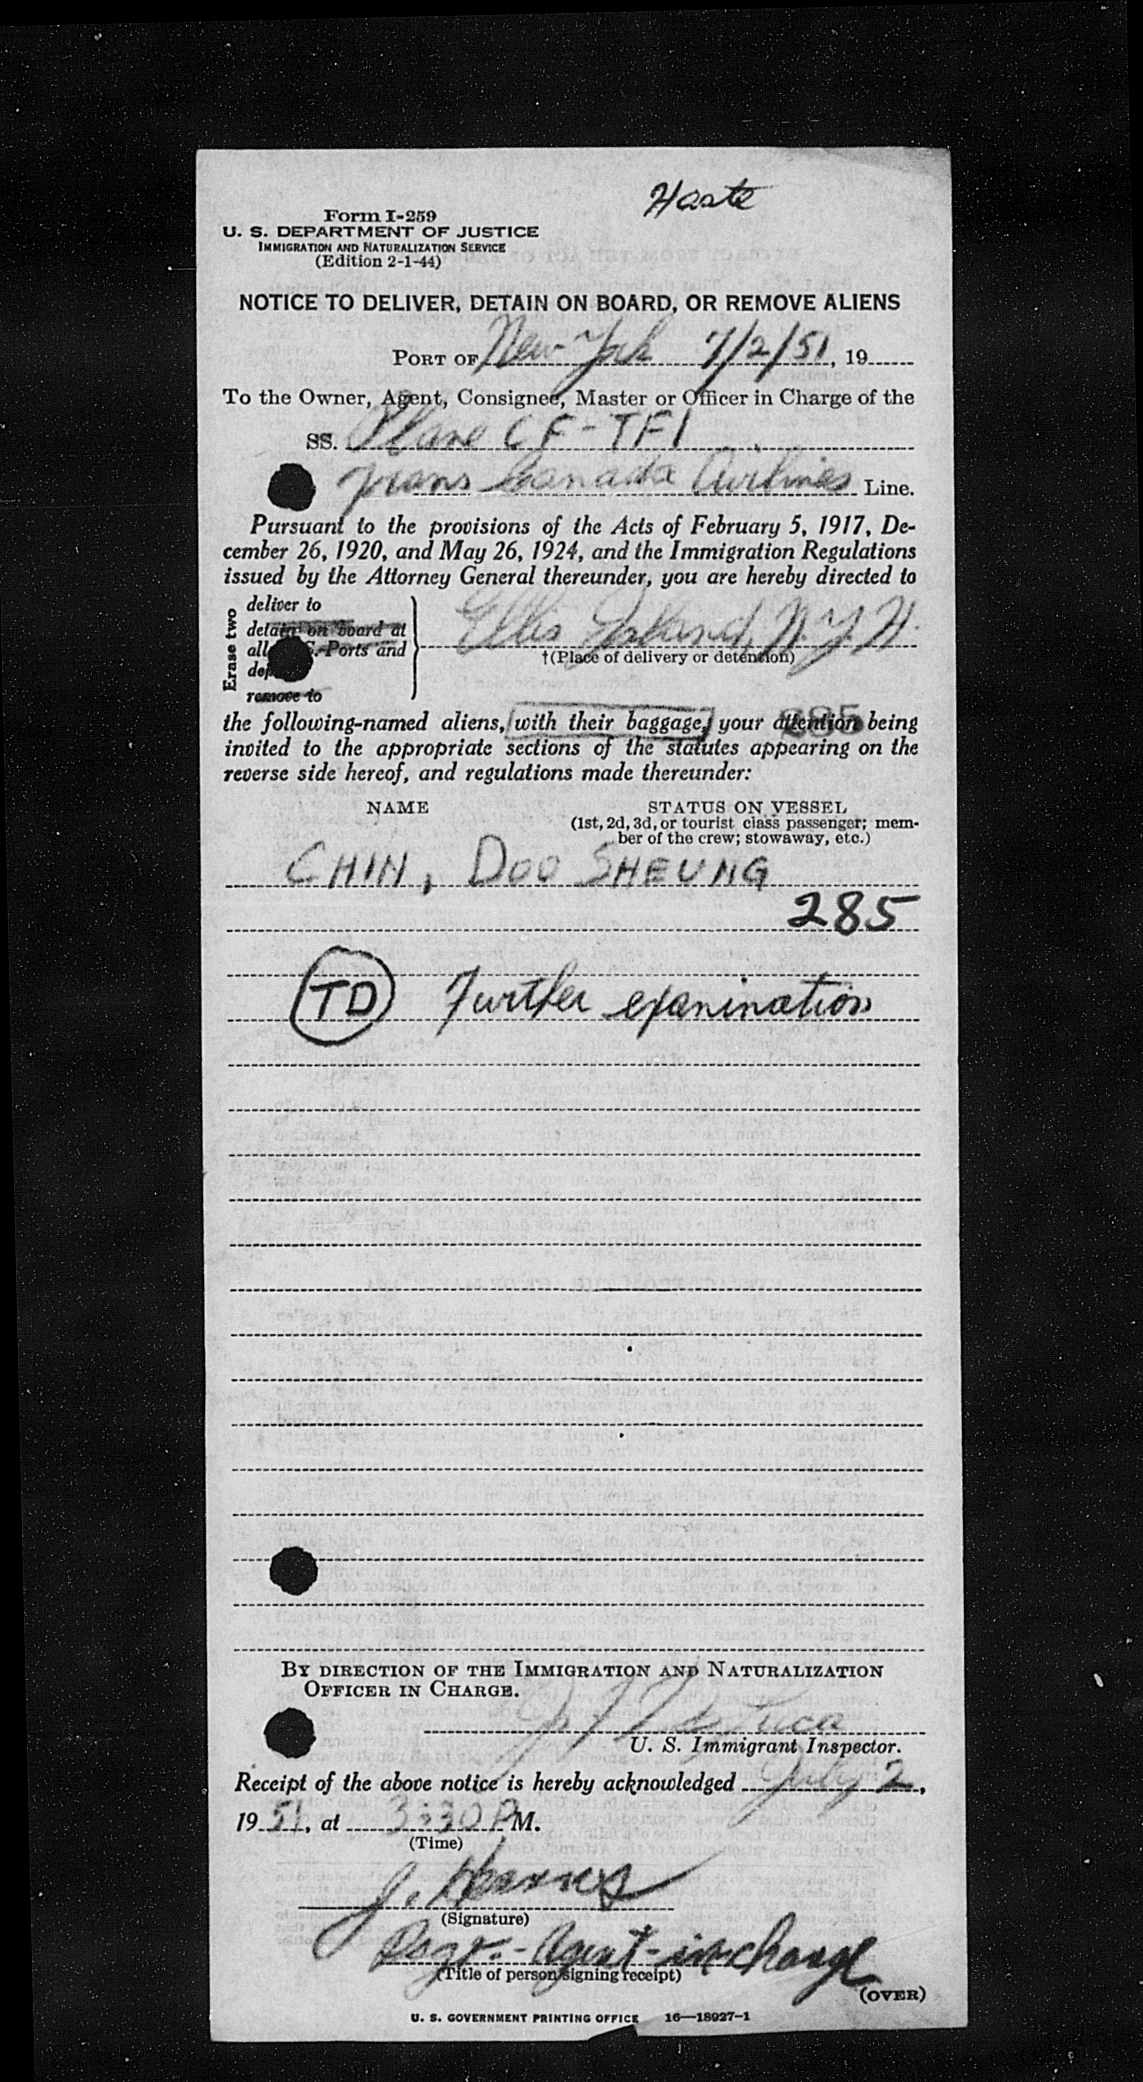 Haste
Form I-259
U. S. DEPARTMENT OF JUSTICE
IMMIGRATION AND NATURALIZATION SERVICE
(Edition 2-1-44)
NOTICE TO DELIVER, DETAIN ON BOARD, OR REMOVE ALIENS
PORT OF New York 7/2/51, 19
To the Owner, Agent, Consignee, Master or Officer in Charge of the
SS. Plane CF-TFI
Trans Canada Airlines Line.
Pursuant to the provisions of the Acts of February 5, 1917, De-
cember 26, 1920, and May 26, 1924, and the Immigration Regulations
issued by the Attorney General thereunder, you are hereby directed to
Erase two
deliver to
detain on board at
all Ports and
remove to
Ellis Island, N.Y.H.
†(Place of delivery or detention)
285
the following-named aliens, with their baggage, your attention being
invited to the appropriate sections of the statutes appearing on the
reverse side hereof, and regulations made thereunder:
NAME STATUS ON VESSEL
(1st, 2d, 3d, or tourist class passenger; mem-
ber of the crew; stowaway, etc.)
CHIN, DOO SHEUNG
285
TD Further examination
BY DIRECTION OF THE IMMIGRATION AND NATURALIZATION
OFFICER IN CHARGE.
U. S. Immigrant Inspector.
Receipt of the above notice is hereby acknowledged July 2,
1951, at 3:30 PM.
(Time)
J.
(Signature)
Psgr.-Agent-in-charge
(Title of person signing receipt)
(OVER)
U. S. GOVERNMENT PRINTING OFFICE 16—18927-1